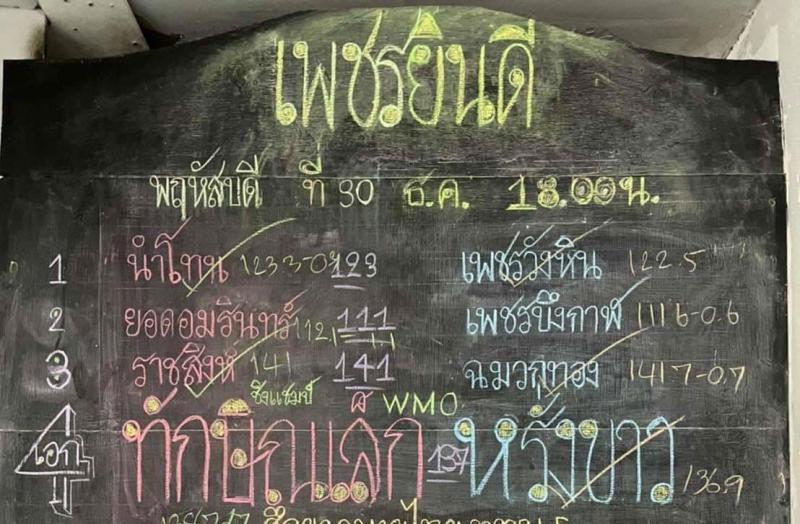 เพชรยินดี
พฤหัสบดี ที่ 30 ธ.ค. 18.00น.
1 นำโทน 123 เพชรวังหิน 122.5
2 ยอดอมรินทร์ 112.1 111 เพชรบึงกาฬ 111.6-0.6
3 ราชสิงห์ 141 141 ฉมวกทอง 141.7-0.7
ชิงแชมป์ WMO
เอก ทักษิณเล็ก 137 หรั่งขาว 136.9